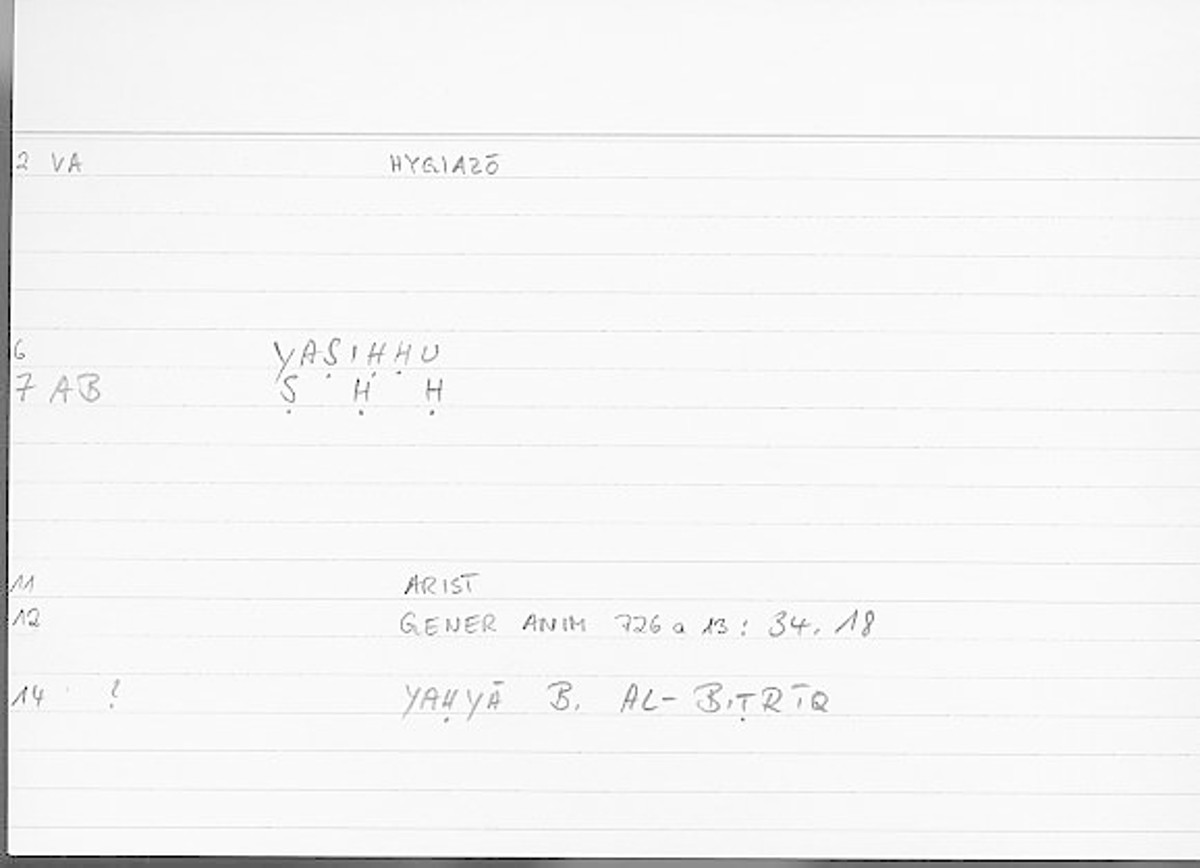 2 VA HYGIAZŌ
6 YAṢIḤḤU
7 AB Ṣ Ḥ Ḥ
11 ARIST
12 GENER ANIM 726 a 13 : 34, 18
14 ? YAḤYĀ B. AL-BIṬRĪQ